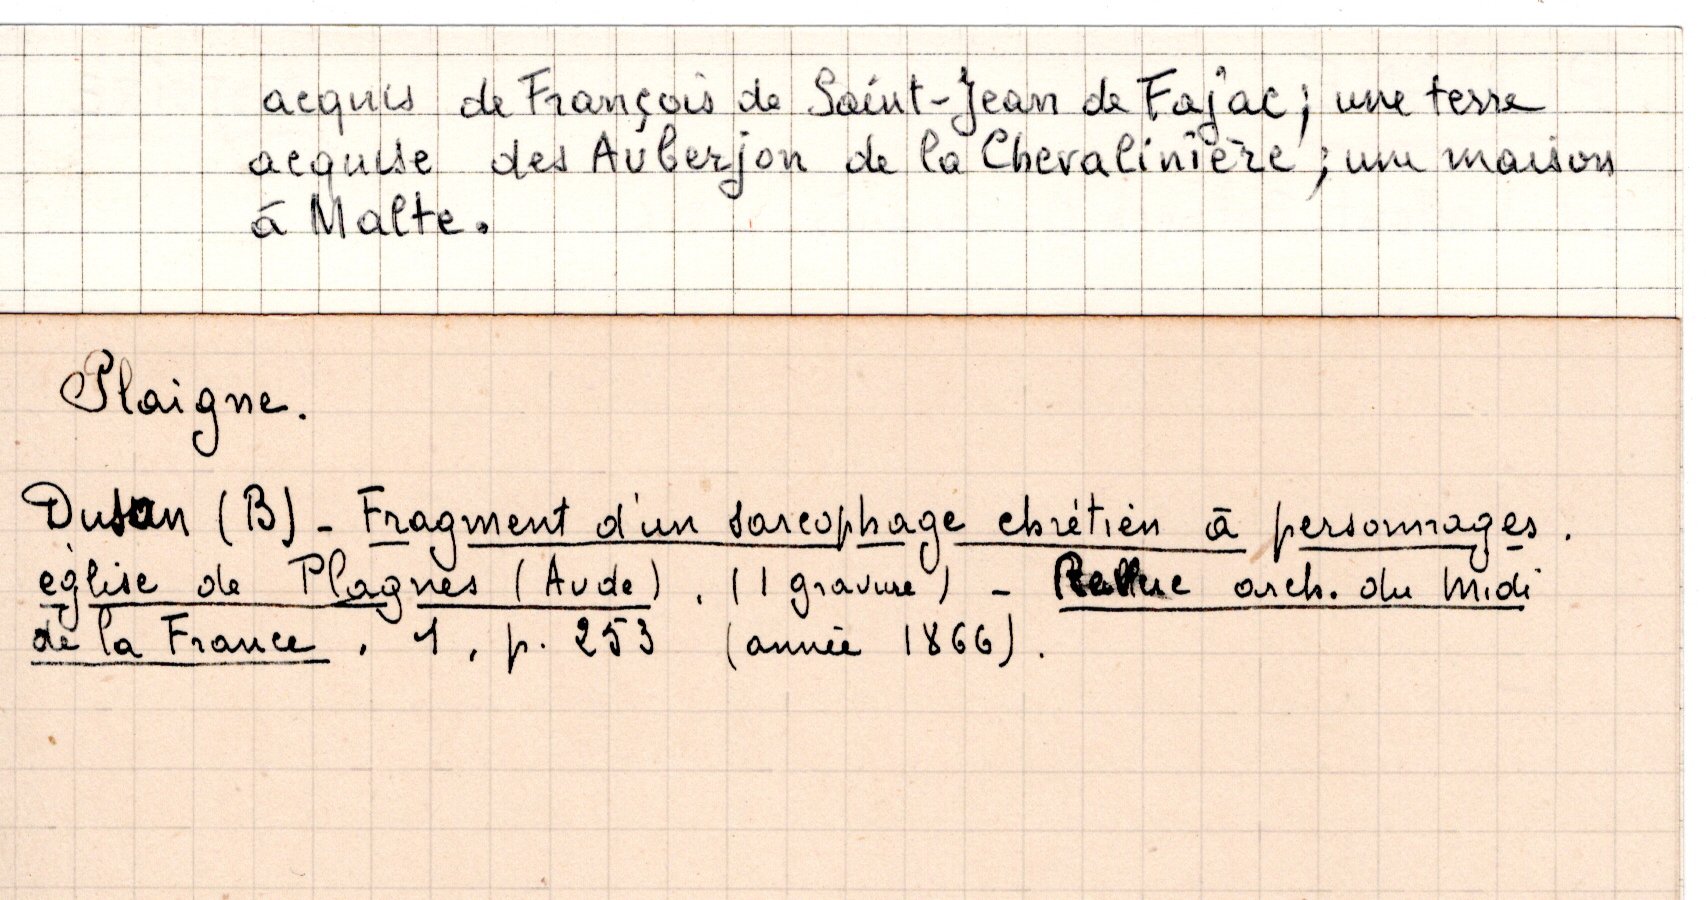 acquis de François de Saint-Jean de Fajac ; une terre
acquise des Auberjon de la Chevalinière ; une maison
à Malte.
Plaigne.
Dusan (B) - Fragment d'un sarcophage chrétien à personnages.
église de Plagnes (Aude). (1 gravure) - Revue arch. du Midi
de la France, 1, p. 253 (année 1866).